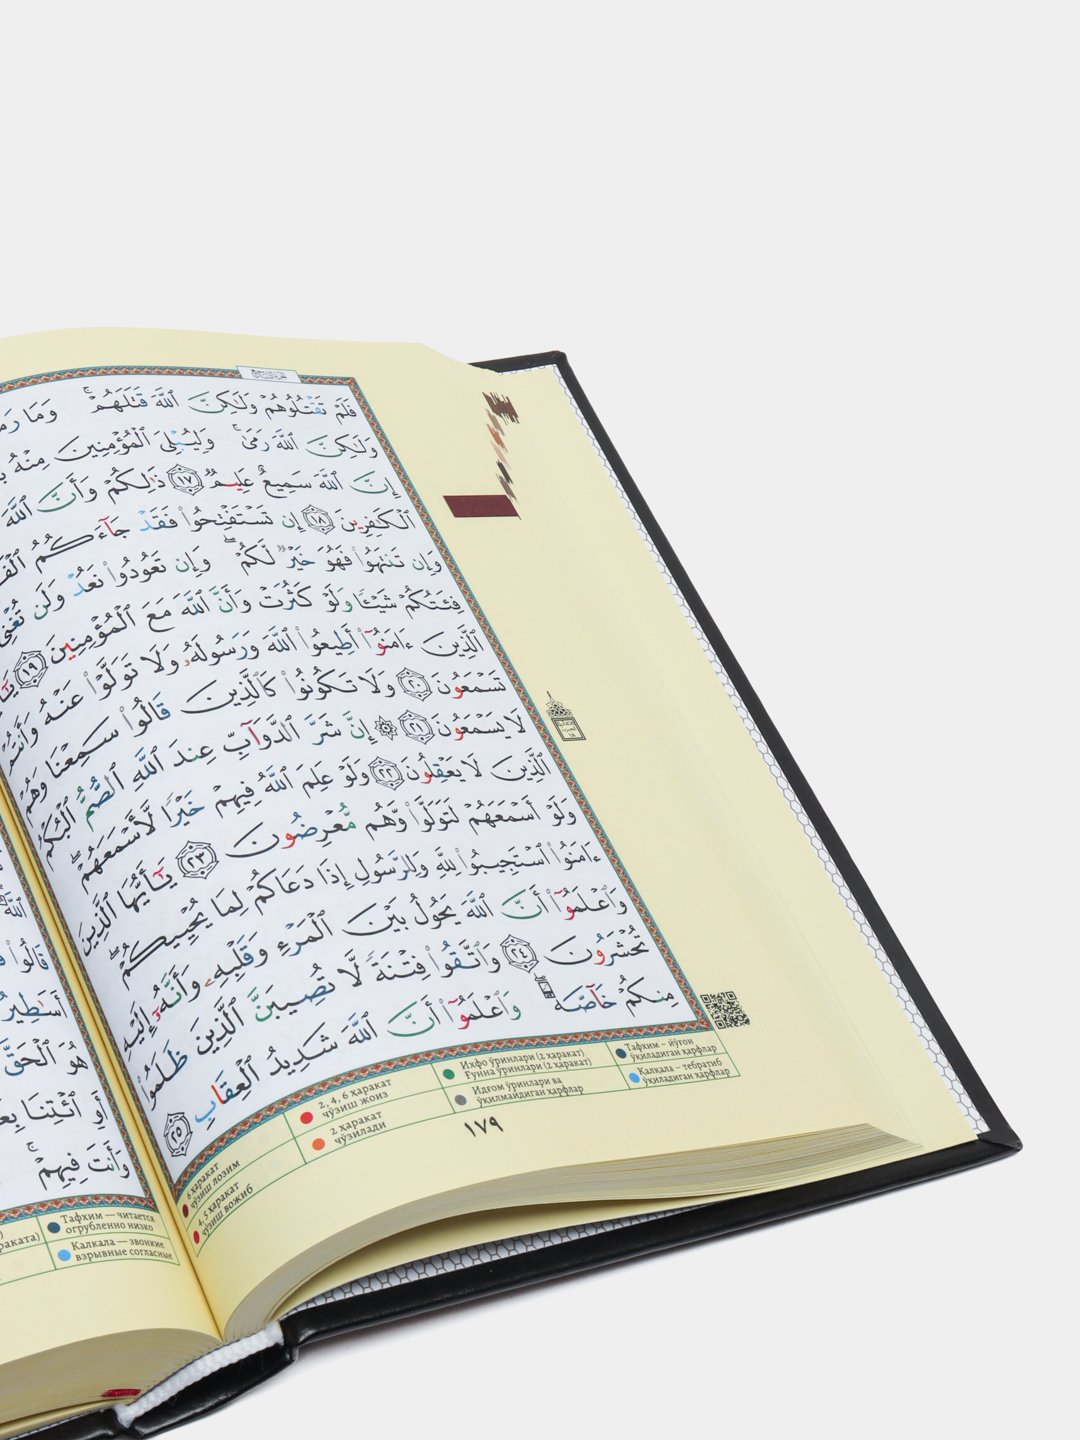 فَلَمْ تَقْتُلُوهُمْ وَلَٰكِنَّ ٱللَّهَ قَتَلَهُمْ ۚ وَمَا رَمَ
وَلَٰكِنَّ ٱللَّهَ رَمَىٰ ۚ وَلِيُبْلِيَ ٱلْمُؤْمِنِينَ مِنْهُ
إِنَّ ٱللَّهَ سَمِيعٌ عَلِيمٌ ١٧ ذَٰلِكُمْ وَأَنَّ ٱللَّهَ
ٱلْكَٰفِرِينَ ١٨ إِن تَسْتَفْتِحُوا۟ فَقَدْ جَآءَكُمُ ٱلْفَ
وَإِن تَنتَهُوا۟ فَهُوَ خَيْرٌ لَّكُمْ ۖ وَإِن تَعُودُوا۟ نَعُدْ وَلَن تُغْنِىَ
فِئَتُكُمْ شَيْـًٔا وَلَوْ كَثُرَتْ وَأَنَّ ٱللَّهَ مَعَ ٱلْمُؤْمِنِينَ ١٩ يَٰٓ
ٱلَّذِينَ ءَامَنُوٓا۟ أَطِيعُوا۟ ٱللَّهَ وَرَسُولَهُۥ وَلَا تَوَلَّوْا۟ عَنْهُ وَأَنتُمْ
تَسْمَعُونَ ٢٠ وَلَا تَكُونُوا۟ كَٱلَّذِينَ قَالُوا۟ سَمِعْنَا وَهُمْ
لَا يَسْمَعُونَ ٢١ ۞ إِنَّ شَرَّ ٱلدَّوَآبِّ عِندَ ٱللَّهِ ٱلصُّمُّ ٱلْبُكْمُ
ٱلَّذِينَ لَا يَعْقِلُونَ ٢٢ وَلَوْ عَلِمَ ٱللَّهُ فِيهِمْ خَيْرًا لَّأَسْمَعَهُمْ ۖ
وَلَوْ أَسْمَعَهُمْ لَتَوَلَّوا۟ وَّهُم مُّعْرِضُونَ ٢٣ يَٰٓأَيُّهَا ٱلَّذِينَ
ءَامَنُوا۟ ٱسْتَجِيبُوا۟ لِلَّهِ وَلِلرَّسُولِ إِذَا دَعَاكُمْ لِمَا يُحْيِيكُمْ ۖ
وَٱعْلَمُوٓا۟ أَنَّ ٱللَّهَ يَحُولُ بَيْنَ ٱلْمَرْءِ وَقَلْبِهِۦ وَأَنَّهُۥٓ إِلَيْهِ
تُحْشَرُونَ ٢٤ وَٱتَّقُوا۟ فِتْنَةً لَّا تُصِيبَنَّ ٱلَّذِينَ ظَلَمُوا۟
مِنكُمْ خَآصَّةً ۖ وَٱعْلَمُوٓا۟ أَنَّ ٱللَّهَ شَدِيدُ ٱلْعِقَابِ ٢٥
6 ҳаракат чўзиш лозим
4, 5 ҳаракат чўзиш вожиб
2, 4, 6 ҳаракат чўзиш жоиз
2 ҳаракат чўзилади
Ихфо ўринлари (2 ҳаракат)
Ғунна ўринлари (2 ҳаракат)
Идғом ўринлари ва
ўқилмайдиган ҳарфлар
Тафхим – йўғон
ўқиладиган ҳарфлар
Қалқала – тебратиб
ўқиладиган ҳарфлар
١٧٩
ٱللَّهُ
قَالُوا۟
أَسَٰطِيرُ
هُوَ ٱلْحَقَّ
أَوِ ٱئْتِنَا بِعَ
وَأَنتَ فِيهِمْ ۚ
Тафхим — читается
огрубленно низко
Калкала — звонкие
взрывные согласные